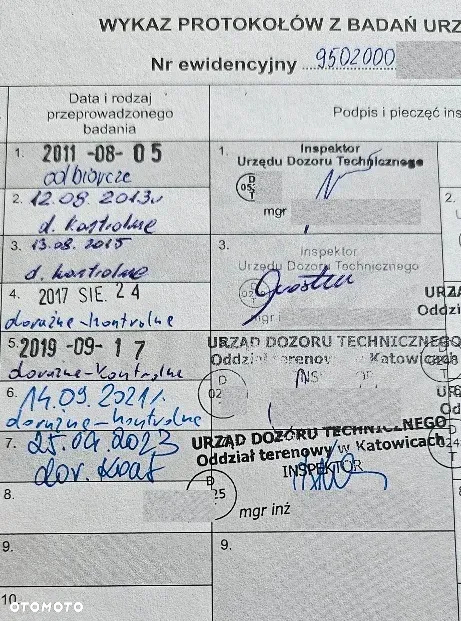 WYKAZ PROTOKOŁÓW Z BADAŃ URZ
Nr ewidencyjny 9502000
Data i rodzaj
przeprowadzonego
badania
Podpis i pieczęć ins
1. 2011 -08- 05
odbiorcze
1. Inspektor
Urzędu Dozoru Technicznego
mgr
2.
2. 12.08.2013r
d. kontrolne
3. 13.08.2015
d. kontrolne
3. Inspektor
Urzędu Dozoru Technicznego
mgr i
4. 2017 SIE. 24
doraźne-kontrolne
URZĄ
Oddzi
5. 2019 -09- 17
doraźne-kontrolne
URZĄD DOZORU TECHNICZNEGO
Oddział terenowy w Katowicach
6. 14.09.2021r.
doraźne-kontrolne
7. 25.09.2023
URZĄD DOZORU TECHNICZNEGO
Oddział terenowy w Katowicach
INSPEKTOR
mgr inż
8.
9.
9.
10.
OTOMOTO